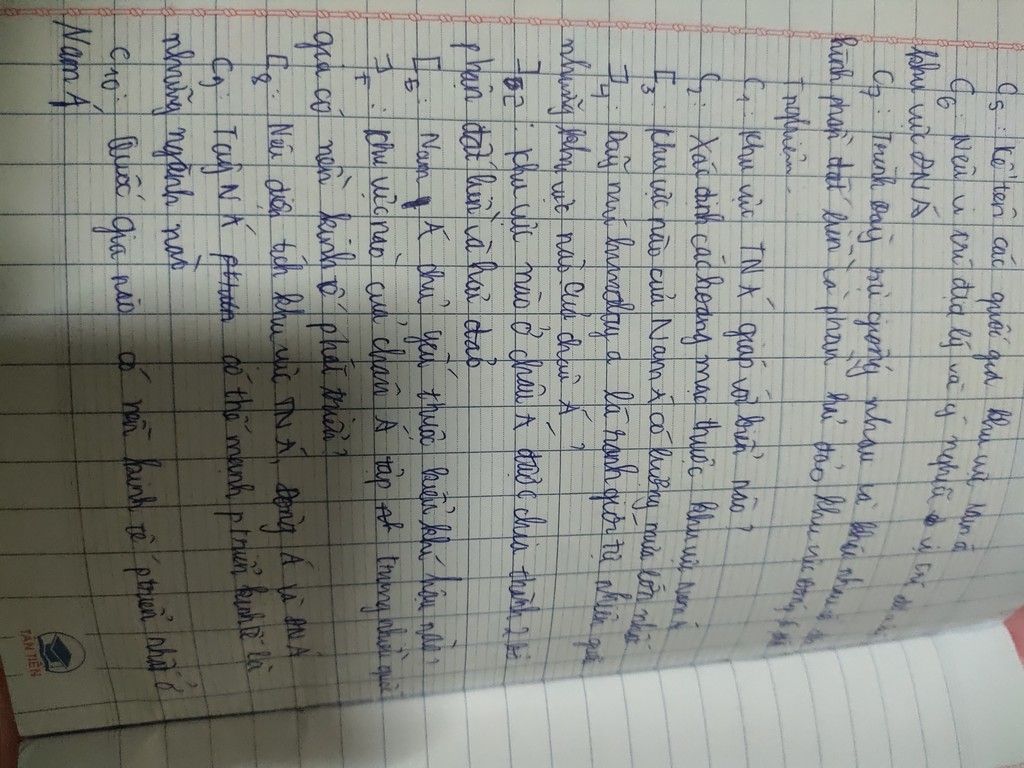 C5: Kể tên các quốc gia khu vực Nam Á
C6: Nêu vị trí địa lý và ý nghĩa vị trí
khu vực ĐNÁ
C7: Trình bày sự giống nhau và khác nhau
hình phần đất liền và phần hải đảo khu vực Đông Á
T nghiệm.
C1: Khu vực TNÁ giáp với biển nào?
C2: Xác định các hoang mạc thuộc khu vực Nam Á
C3: Khu vực nào của Nam Á có lượng mưa lớn nhất
C4: Dãy núi himalaya là ranh giới tự nhiên giữa
những khu vực nào của châu Á?
: Khu vực nào ở châu Á được chia thành 2 bộ
phận đất liền và hải đảo
C6: Nam Á chủ yếu thuộc kiểu khí hậu nào?
C7: Khu vực nào của châu Á tập trung nhiều quốc
gia có nền kinh tế phát triển?
C8: Nêu diện tích khu vực TNÁ, Đông Á và NÁ
C9: Tây NÁ có thế mạnh ptriển kinh tế là
những ngành nào
C10: Quốc gia nào có nền kinh tế ptriển nhất ở
Nam Á
TÂN TIẾN